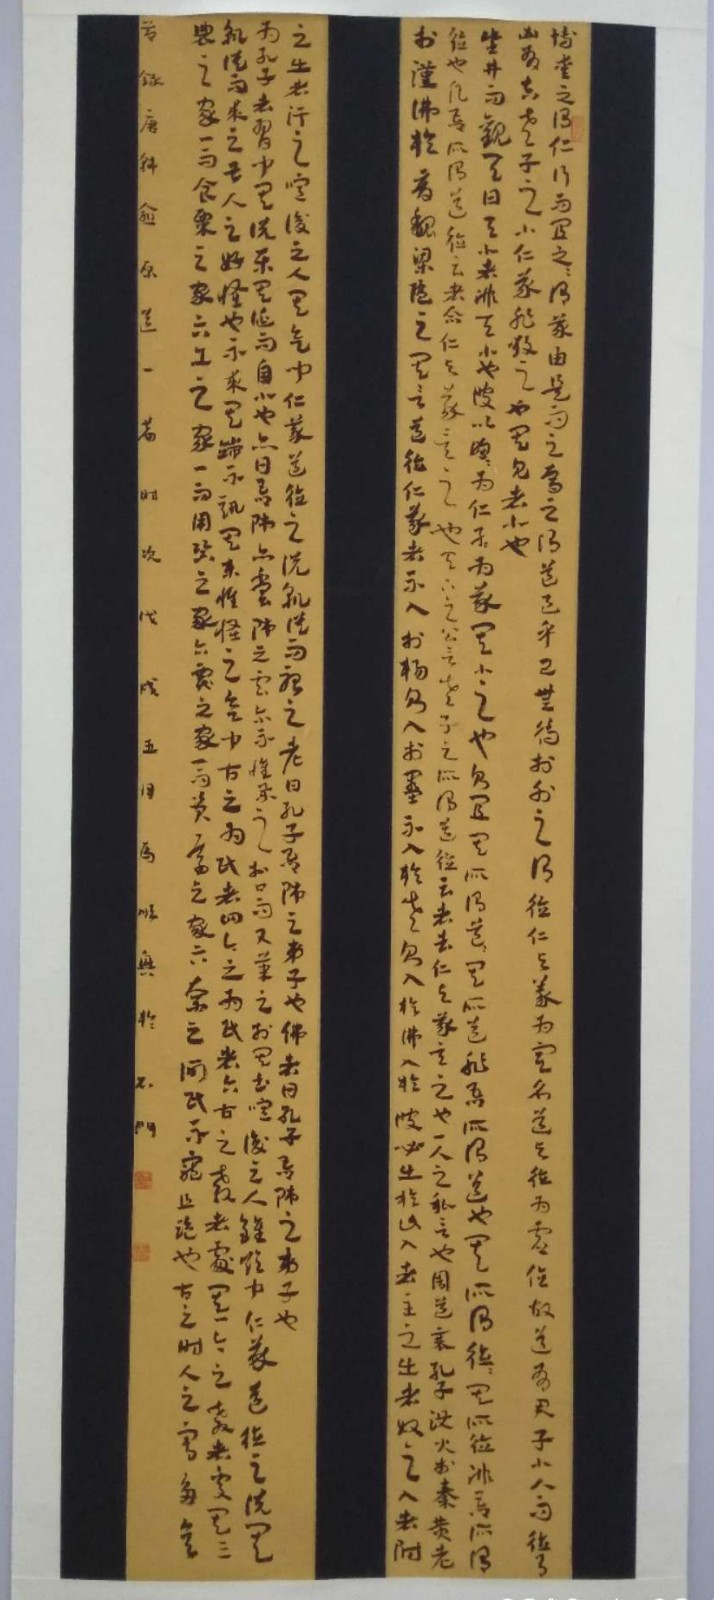 博愛之謂仁行而宜之之謂義由是而之焉之謂道足乎己無待於外之謂德仁與義為定名道與德為虛位故道有君子小人而德有
凶有吉老子之小仁義非毀之也其見者小也
坐井而觀天曰天小者非天小也彼以煦煦為仁孑孑為義其小之也則宜其所謂道道其所道非吾所謂道也其所謂德德其所德非吾所謂
德也凡吾所謂道德云者合仁與義言之也天下之公言老子之所謂道德云者去仁與義言之也一人之私言也周道衰孔子沒火於秦黃老
於漢佛於晉魏梁隋之間其言道德仁義者不入於楊則入於墨不入於老則入於佛入於彼必出於此入者主之出者奴之入者附
之出者汙之噫後之人其欲聞仁義道德之說孰從而聽之老者曰孔子吾師之弟子也佛者曰孔子吾師之弟子也
為孔子者習聞其說樂其誕而自小也亦曰吾師亦嘗師之云爾不惟舉之於口而又筆之於其書噫後之人雖欲聞仁義道德之說其
孰從而求之甚人之好怪也不求其端不訊其末惟怪之欲聞古之為民者四今之為民者六古之教者處其一今之教者處其三
農之家一而食粟之家六工之家一而用器之家六賈之家一而資焉之家六奈之何民不窮且盜也古之時人之害多矣
節錄唐韓愈原道一篇時次戊戌五月馬順興於石門